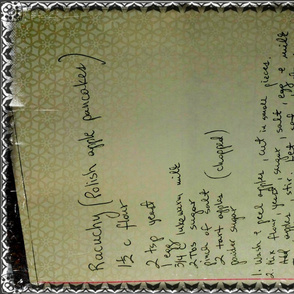 Racuchy (Polish apple pancakes)
1½ c flour
2 tsp yeast
1 egg
3/4 c lukewarm milk
2 Tbs sugar
pinch of salt
2 tart apples (chopped)
powder sugar
1. Wash & peel apples, cut in small pieces.
2. Mix flour, yeast, sugar, salt, egg & milk
Add apples, stir. Let